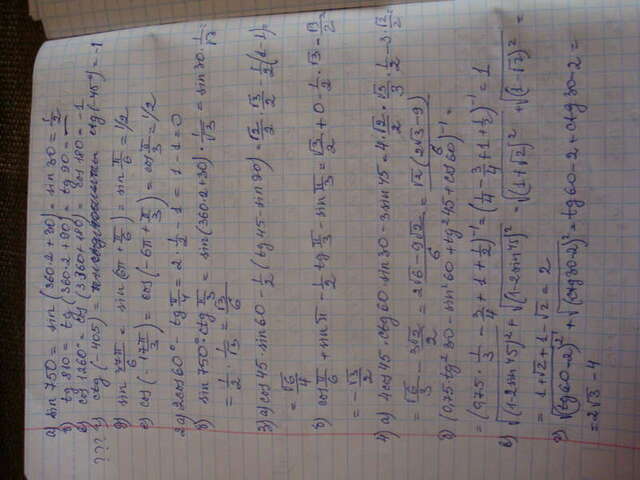 а) sin 750 = sin (360·2 + 30) = sin 30 = 1/2
б) tg 810 = tg (360·2 + 90) = tg 90 = —
в) cos 1260 = cos (3·360 + 180) = cos 180 = -1
??? г) ctg (-405) = ctg (-45°) = -1
д) sin 37π/6 = sin (6π + π/6) = sin π/6 = 1/2
е) cos (-17π/3) = cos (-6π + π/3) = cos π/3 = 1/2
2 а) 2cos 60° - tg π/4 = 2 · 1/2 - 1 = 1 - 1 = 0
б) sin 750° · ctg π/3 = sin (360·2 + 30) · 1/√3 = sin 30 · 1/√3 =
= 1/2 · 1/√3 = √3/6
3) а) cos 45 · sin 60 - 1/2 (tg 45 - sin 90) = √2/2 · √3/2 - 1/2 (1-1)
= √6/4
б) cos π/6 + sin π - 1/2 tg π/3 - sin π/3 = √3/2 + 0 - 1/2 · √3 - √3/2
= - √3/2
4) а) 4cos 45 · ctg 60 · sin 30 - 3sin 45 = 4 · √2/2 · √3/3 · 1/2 - 3 √2/2 =
= √6/3 - 3√2/2 = 2√6 - 9√2 / 6 = √2 (2√3 - 9) / 6
б) (0,75 tg² 30 - sin² 60 + tg² 45 + cos 60)⁻¹ =
= (0,75 · 1/3 - 3/4 + 1 + 1/2)⁻¹ = (1/4 - 3/4 + 1 + 1/2)⁻¹ = 1
в) √(1 - 2sin 45)² + √(1 - 2sin 45)² = √(1 + √2)² + √(1 - √2)² =
= 1 + √2 + 1 - √2 = 2
г) √(tg 60 - 2)² + √(ctg 30 - 2)² = tg 60 - 2 + ctg 30 - 2 =
= 2√3 - 4